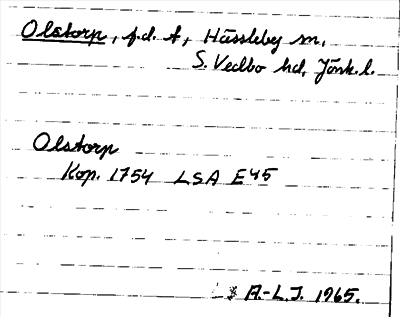 Olstorp, f.d. t, Hässleby sn,
S. Vedbo hd, Jönk. l.
Olstorp
Kop. 1754 LSA E45
A.-L.J. 1965.